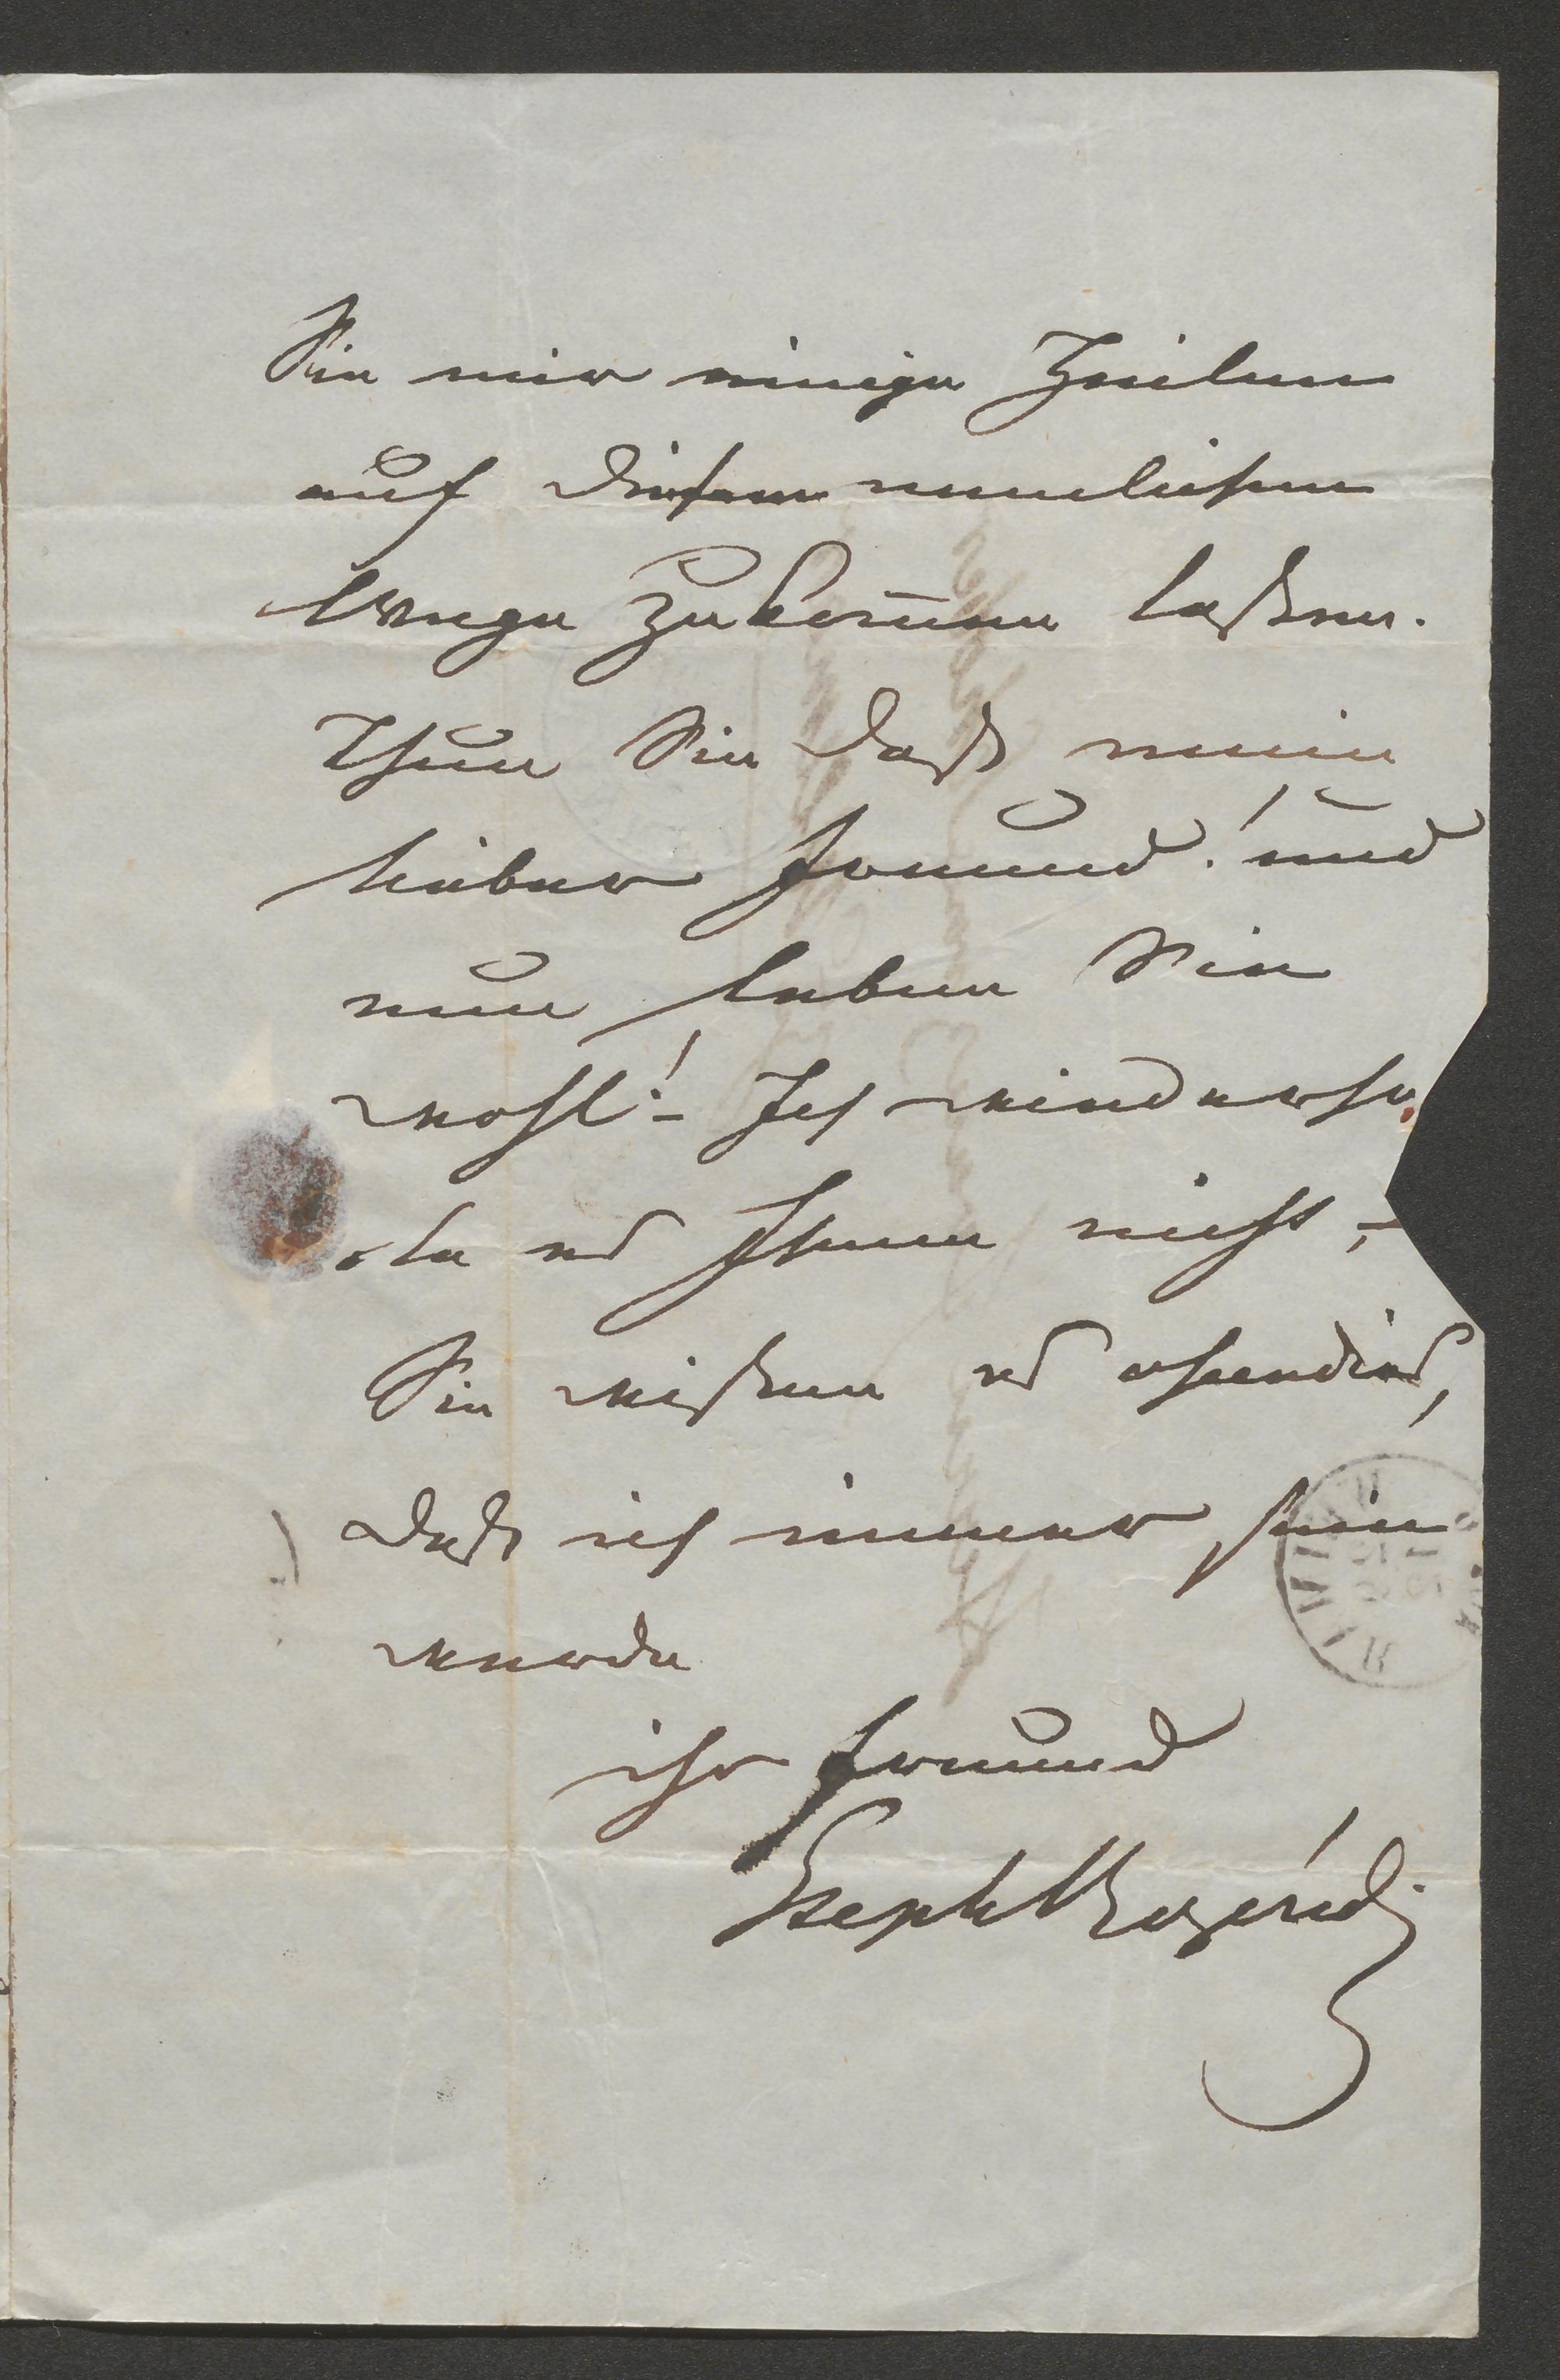 Sie mir einige Zeilen
auf diesem nemlichen
Wege zukom̅en laßen.
Thun Sie daß mein
lieber Freund! und
nun leben Sie
wohl! – Ich wiederho
le es Ihnen nicht, –
Sie wißen es ohendies,
daß ich immer sein
werde
ihr Freund